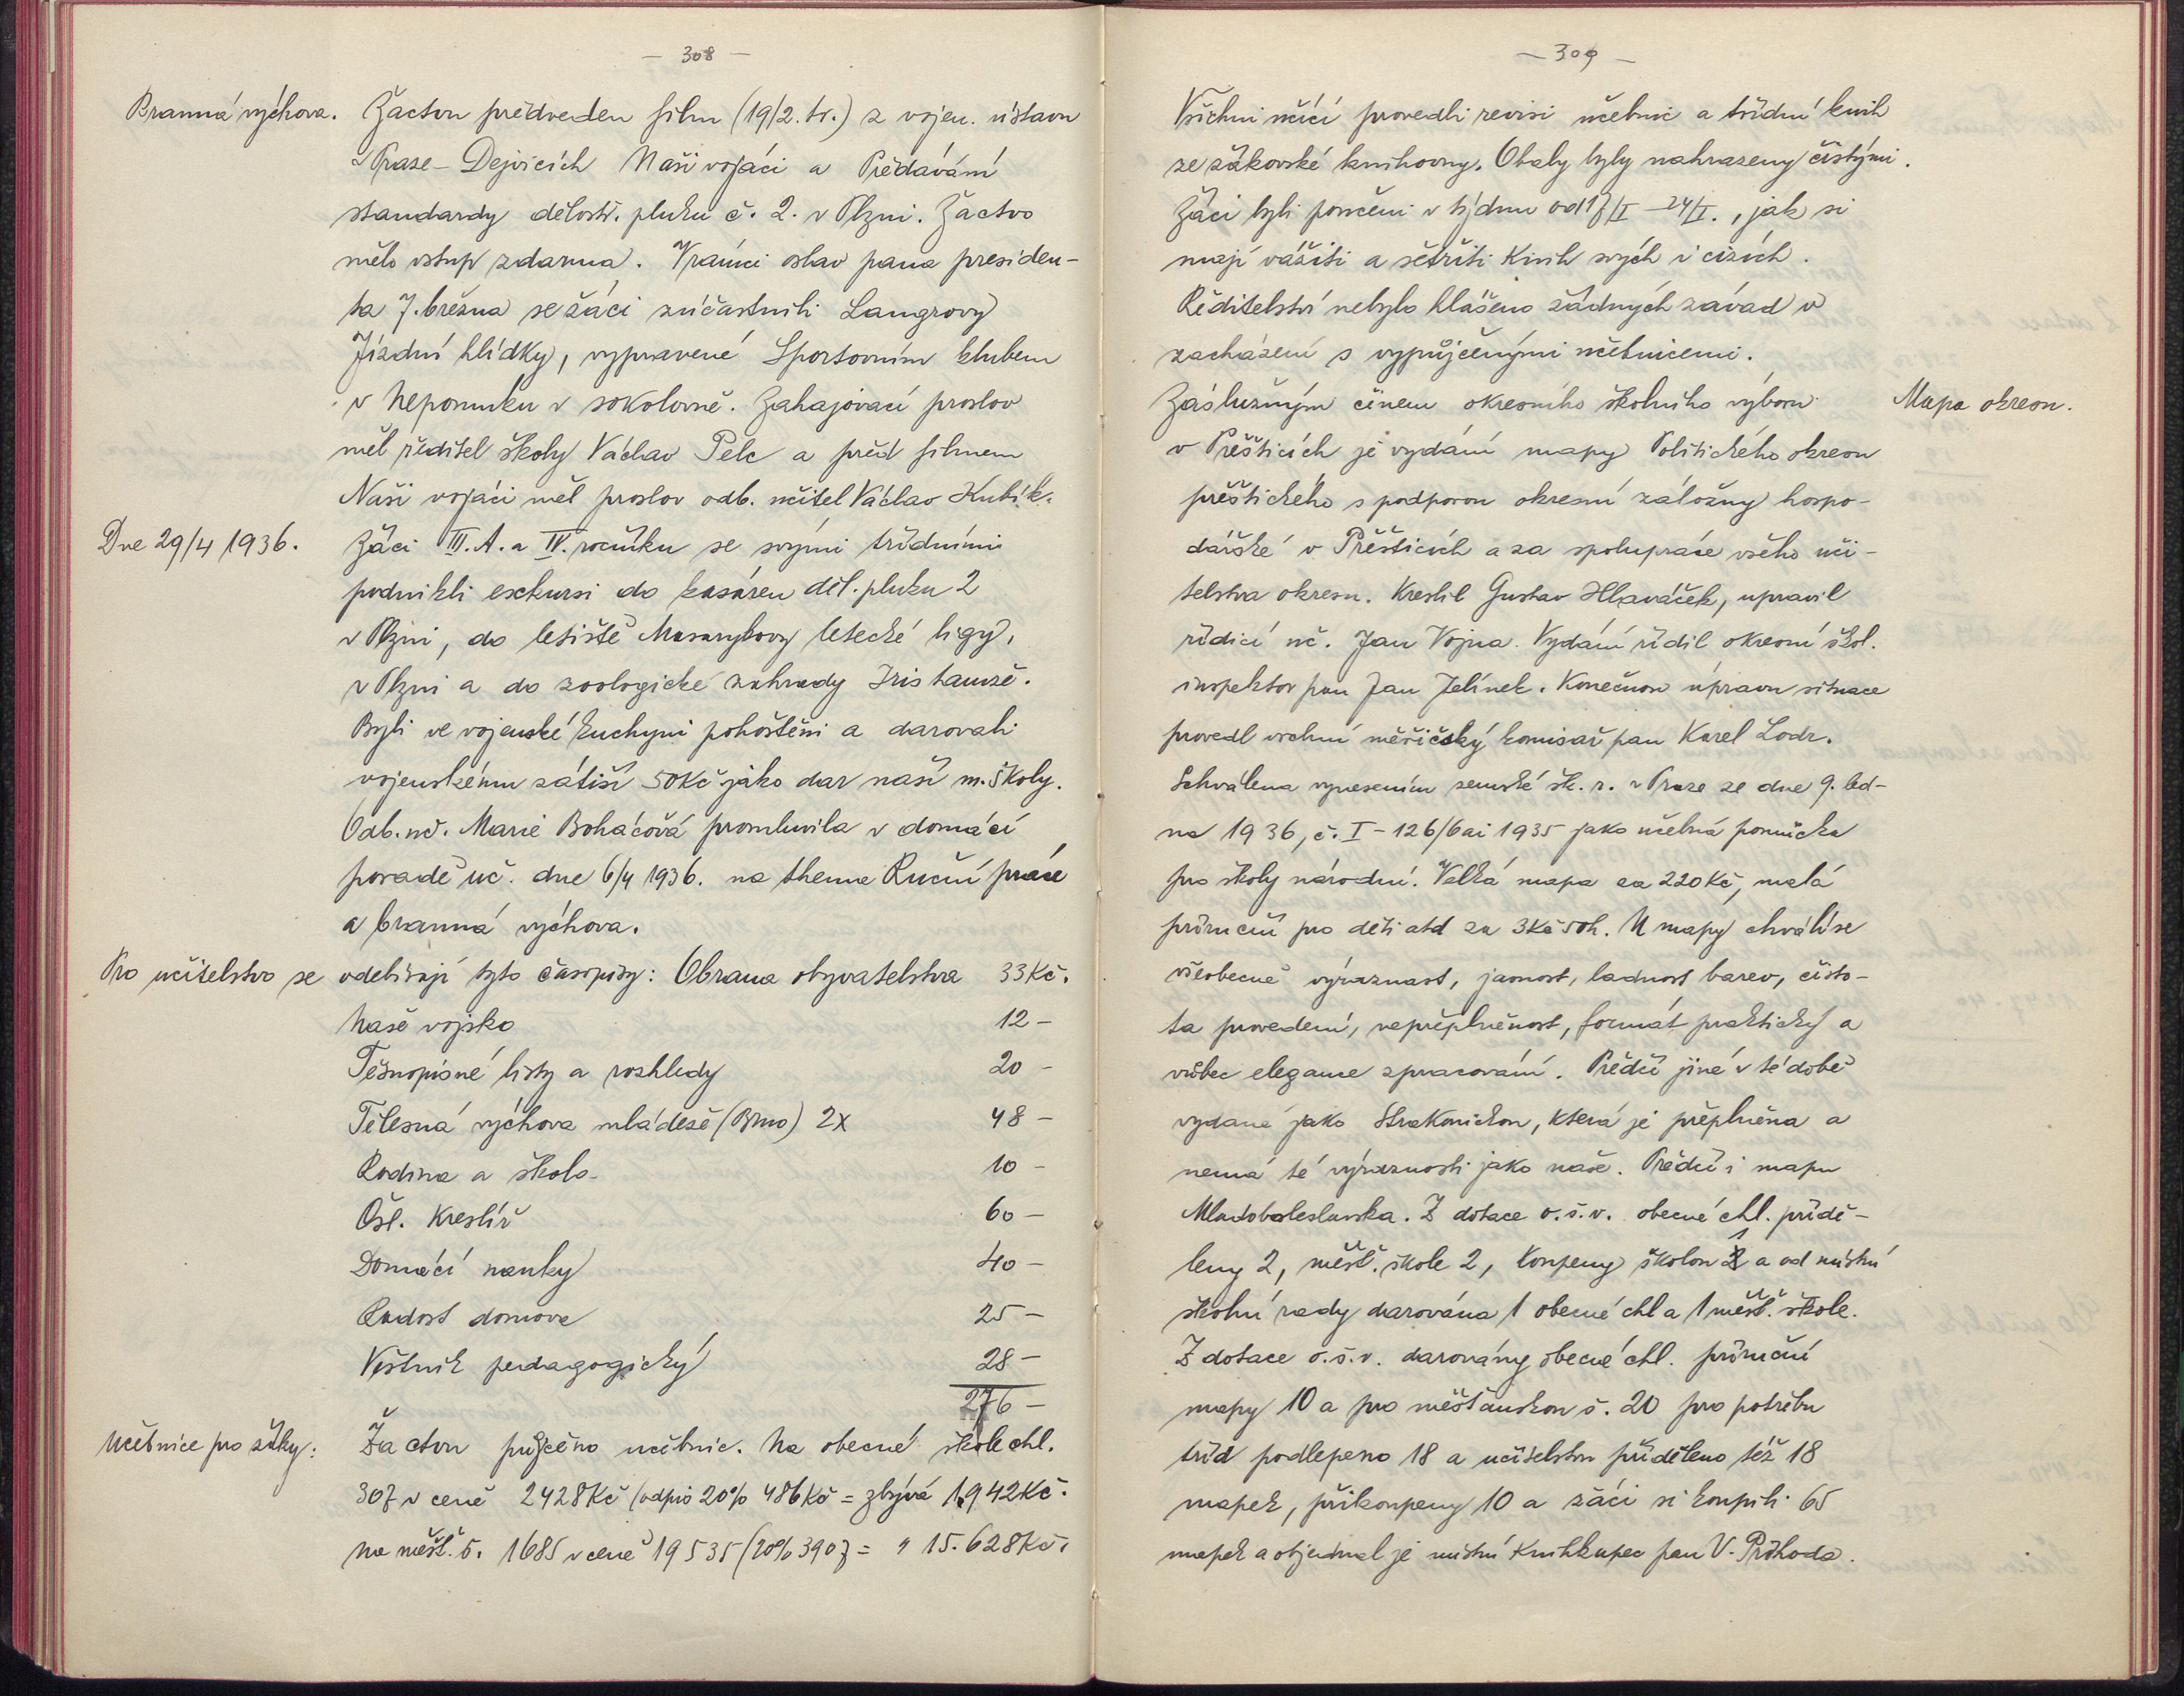 — 308 —
Branná výchova. Žactvu předveden film (19/2. t.r.) z vojen. ústavu
v Praze - Dejvicích Naši vojáci a Předávání
standardy dělostř. pluku č. 2. v Plzni. Žactvo
mělo vstup zdarma. V rámci oslav pana presiden-
ta 7. března se žáci zúčastnili Langrovy
Jízdní hlídky, vypravené Sportovním klubem
v Nepomuku v sokolovně. Zahajovací proslov
měl ředitel školy Václav Pelc a před filmem
Naši vojáci měl proslov odb. učitel Václav Kubík.
Dne 29/4 1936. Žáci III. A. a IV. ročníku se svými třídními
podnikli exkursi do kasáren děl. pluku 2
v Plzni, do letiště Masarykovy letecké ligy,
v Plzni a do zoologické zahrady Iris tamže.
Byli ve vojenské kuchyni pohoštěni a darovali
vojenskému zátiší 50 Kč jako dar naší m. školy.
Odb. uč. Marie Boháčová promluvila v domácí
poradě uč. dne 6/4 1936. na thema Ruční práce
a branná výchova.
Pro učitelstvo se odebírají tyto časopisy: Obrana obyvatelstva 33 Kč.
Naše vojsko 12 —
Těsnopisné listy a rozhledy 20 —
Tělesná výchova mládeže (Brno) 2x 48 —
Rodina a škola 10 —
Čsl. Kreslíř 60 —
Domácí nauky 40 —
Radost domova 25 —
Věstník pedagogický 28 —
276 —
Učebnice pro žáky: Žactvu půjčeno učebnic. Na obecné škole chl.
307 v ceně 2428 Kč (odpis 20% 486 Kč = zbývá 1.942 Kč.
na měšť. š. 1685 v ceně 19535 (20% 3907 = " 15.628 Kč.
— 309 —
Všichni učící provedli revisi učebnic a třídní knih
ze žákovské knihovny. Obaly byly nahrazeny čistými.
Žáci byli poučeni v týdnu od 17/I — 24/I., jak si
mají vážiti a šetřiti knih svých i cizích.
Ředitelství nebylo hlášeno žádných závad v
zacházení s vypůjčenými učebnicemi.
Záslužným činem okresního školního výboru Mapa okresu.
v Přešticích je vydání mapy Politického okresu
přeštického s podporou okresní záložny hospo-
dářské v Přešticích a za spolupráce všeho uči-
telstva okresu. Kreslil Gustav Hlaváček, upravil
řídící uč. Jan Vojna. Vydání řídil okresní škol.
inspektor pan Jan Jelínek. Konečnou úpravu situace
provedl vrchní měřičský komisař pan Karel Lodr.
Schválena vynesením zemské šk. r. v Praze ze dne 9. led-
na 1936, č. I - 126/6 ai 1935 jako učebná pomůcka
pro školy národní. Velká mapa za 220 Kč, malá
příruční pro děti atd za 3 Kč 50 h. U mapy chválí se
všeobecně výraznost, jasnost, ladnost barev, čisto-
ta provedení, nepřeplněnost, formát praktický a
vůbec elegance zpracování. Předčí jiné v té době
vydané jako Strakonickou, která je přeplněna a
nemá té výraznosti jako naše. Předčí i mapu
Mladoboleslavska. Z dotace o. š. v. obecné chl. přidě-
leny 2, měšť. škole 2, koupeny školou 1 a od místní
školní rady darována 1 obecné chl a 1 měšť. škole.
Z dotace o. š. v. darovány obecné chl. příruční
mapy 10 a pro měšťanskou š. 20 pro potřebu
tříd podlepeno 18 a učitelstvu přiděleno též 18
mapek, přikoupeny 10 a žáci si koupili 65
mapek a objednal je místní knihkupec pan V. Příhoda.